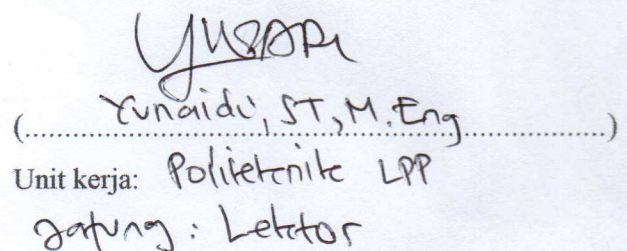 (Yunaidi, ST, M.Eng)
Unit kerja: Politeknik LPP
Jafung : Lektor